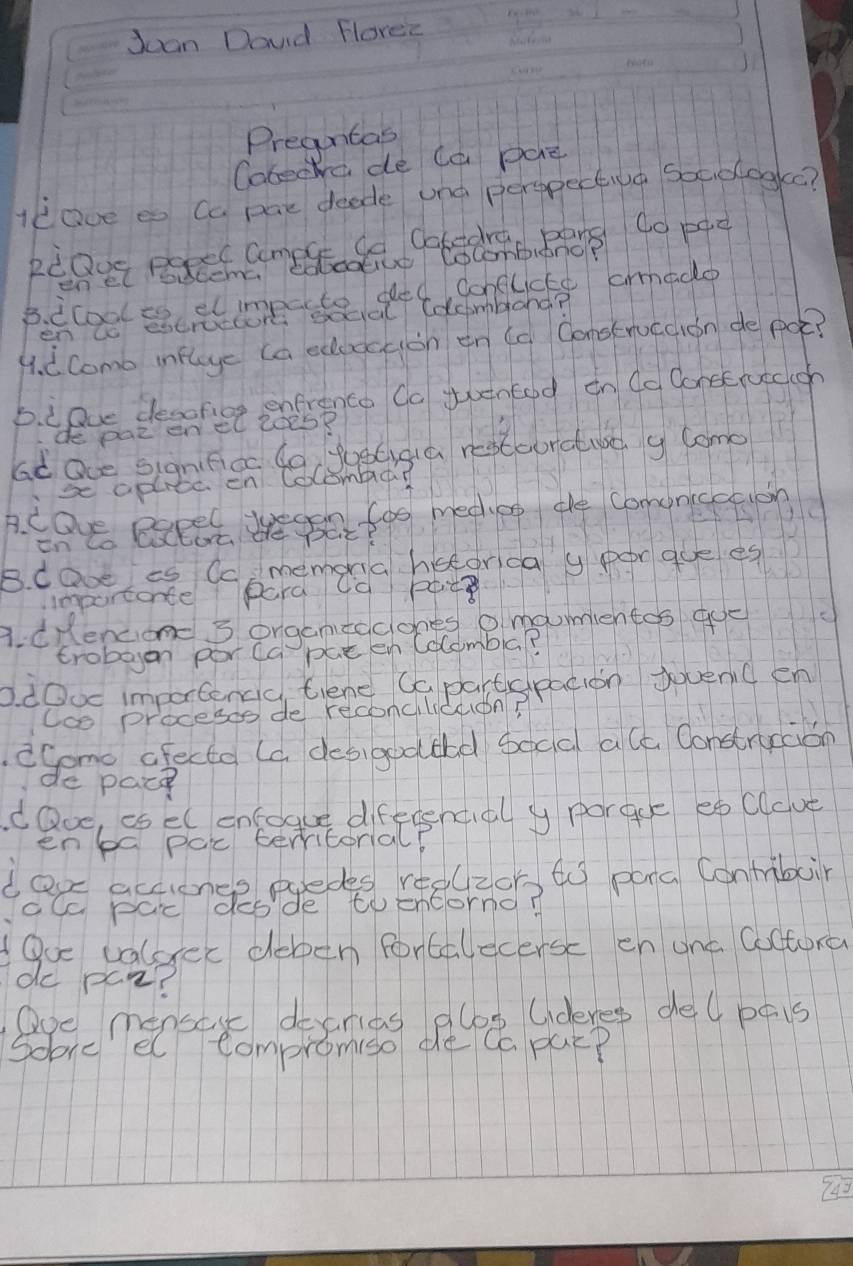 Joan David Florez
Preguntas
Catedra de la paz
1¿Que es la paz desde una perspectiva Sociologica?
2¿Que papel cumple la Catedra para la paz
en el sistema educativo colombiano?
3.¿Cual es el impacto del conflicto armado
en la estructura social colombiana?
4.¿Como influye la educacion en la Construcción de paz?
5.¿Que desafios enfrenta la juventud en la Construccion
de paz en el 2025?
6¿Que significa la justicia restaurativa y Como
se aplica en Colombia?
7.¿Que papel juegan los medios de comunicacción
en la cultura de paz?
8.¿Que es la memoria historica y por que es
importante para la paz?
9.¿Menciona 3 organizaciones o movimientos que
trabajan por la paz en Colombia?
0.¿Que importancia tiene la participación juvenil en
los procesos de reconciliacion?
.¿Como afecta la desigualdad Social a la Construcción
de paz?
.¿Que, es el enfoque diferencial y porque es Clave
en la paz territorial?
¿Que acciones puedes realizar tu para Contribuir
a la paz desde tu entorno?
¿Que valores deben fortalecerse en una Cultura
de paz?
Que mensaje dexrias a los lideres del pais
Sobre el compromiso de la paz?